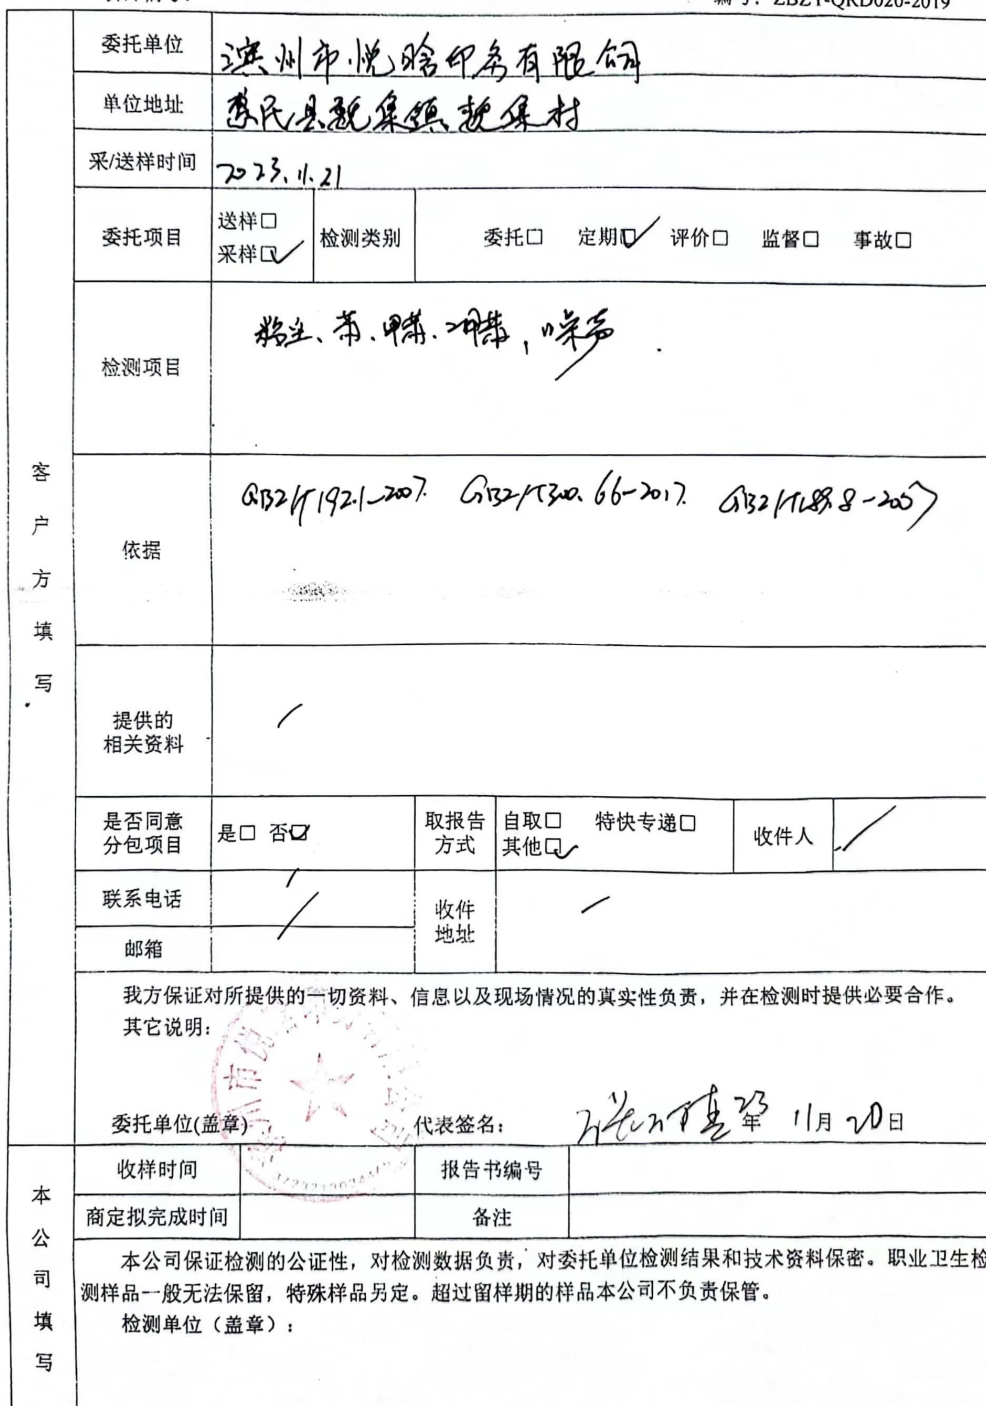 编号：ZBZY-QRD020-2019
委托单位 滨州市悦晗印务有限公司
单位地址 惠民县魏集镇魏集村
采/送样时间 2023.11.21
委托项目 送样□ 采样☑ 检测类别 委托□ 定期☑ 评价□ 监督□ 事故□
检测项目 粉尘、苯、甲苯、二甲苯，噪声
依据 GBZ/T192.1-2007. GBZ/T300.66-2017. GBZ/T189.8-2007
提供的
相关资料 /
是否同意
分包项目 是□ 否☑ 取报告
方式 自取□ 特快专递□
其他☑ 收件人 /
联系电话 / 收件
地址 /
邮箱 /
我方保证对所提供的一切资料、信息以及现场情况的真实性负责，并在检测时提供必要合作。
其它说明：
委托单位(盖章) 代表签名： 23年 11月20日
收样时间 报告书编号
商定拟完成时间 备注
本公司保证检测的公证性，对检测数据负责，对委托单位检测结果和技术资料保密。职业卫生检
测样品一般无法保留，特殊样品另定。超过留样期的样品本公司不负责保管。
检测单位（盖章）：
客户方填写
本公司填写